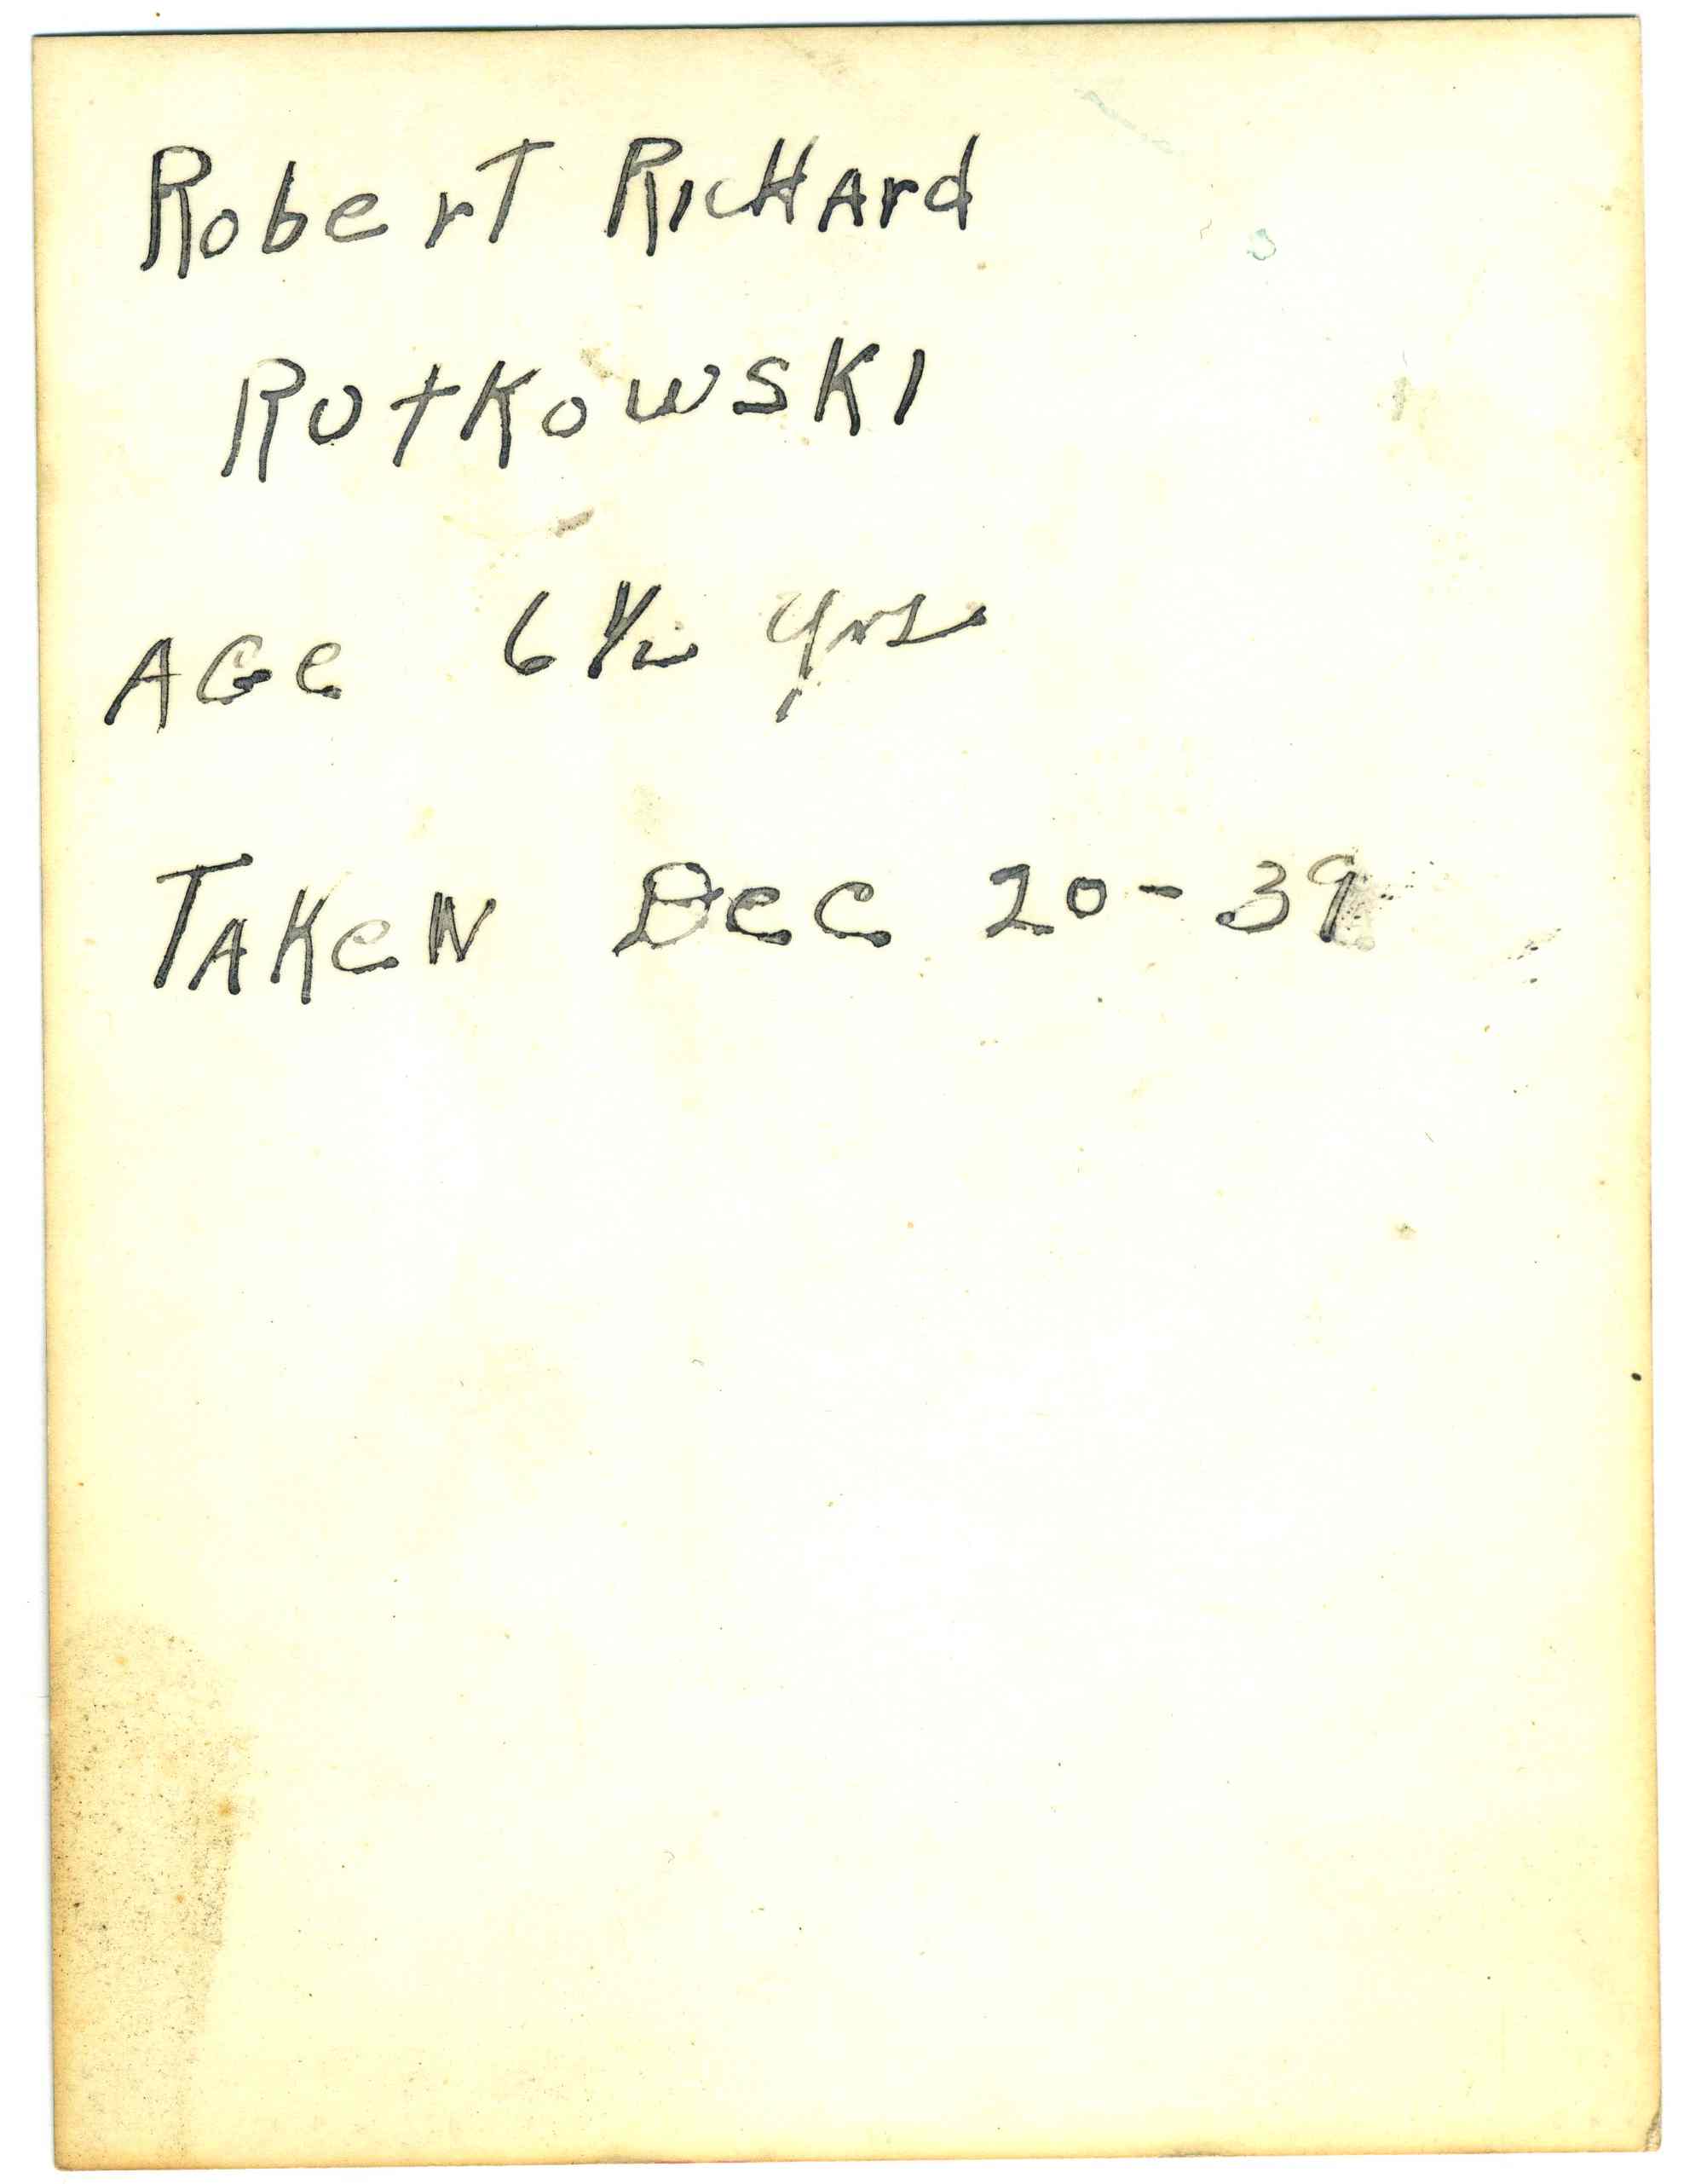 Robert RicHArd
RutKowsKI
AGe 6 1/2 yrs
TAKeN Dec 20-39